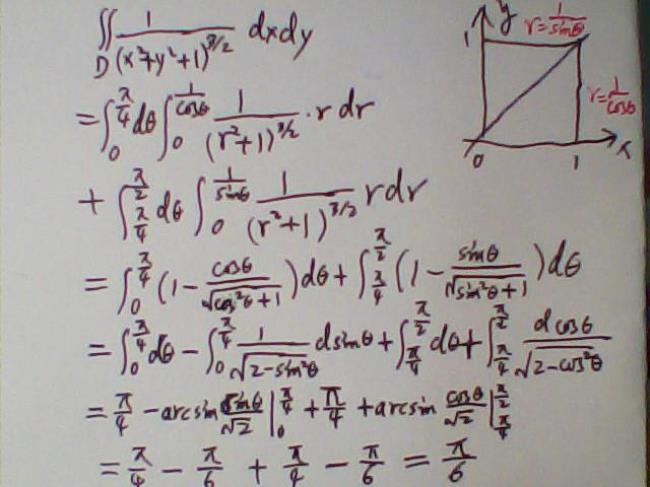 ∬_D 1/(x²+y²+1)^{3/2} dxdy
= ∫_0^{π/4} dθ ∫_0^{1/cosθ} 1/(r²+1)^{3/2} · r dr
+ ∫_{π/4}^{π/2} dθ ∫_0^{1/sinθ} 1/(r²+1)^{3/2} r dr
= ∫_0^{π/4} (1 - cosθ/√(cos²θ+1)) dθ + ∫_{π/4}^{π/2} (1 - sinθ/√(sin²θ+1)) dθ
= ∫_0^{π/4} dθ - ∫_0^{π/4} 1/√(2-sin²θ) dsinθ + ∫_{π/4}^{π/2} dθ + ∫_{π/4}^{π/2} dcosθ/√(2-cos²θ)
= π/4 - arcsin sinθ/√2 |_0^{π/4} + π/4 + arcsin cosθ/√2 |_{π/4}^{π/2}
= π/4 - π/6 + π/4 - π/6 = π/6
y
r=1/sinθ
1
r=1/cosθ
0
1
x